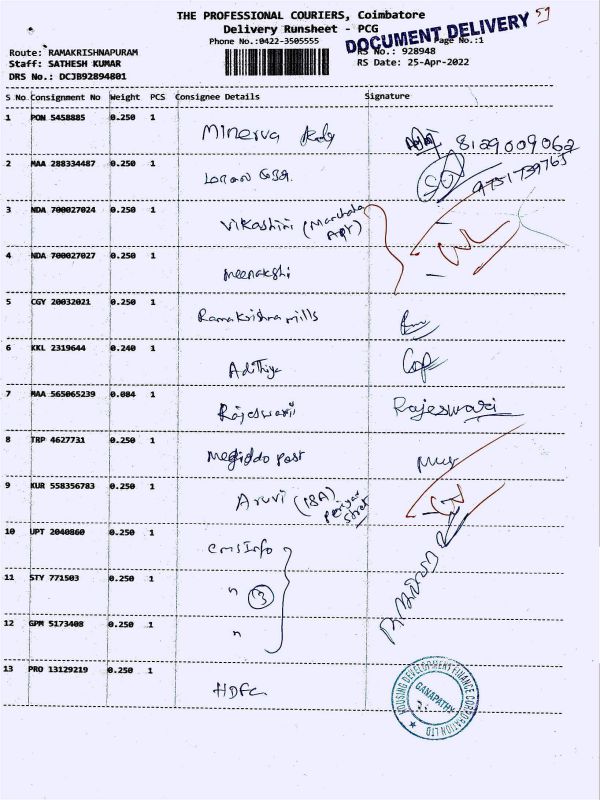 THE PROFESSIONAL COURIERS, Coimbatore
59
Delivery Runsheet - PCG
DOCUMENT DELIVERY
Phone No.:0422-3505555
Page No.:1
Route: RAMAKRISHNAPURAM
RS No.: 928948
Staff: SATHESH KUMAR
RS Date: 25-Apr-2022
DRS No.: DCJB92894801
S No Consignment No Weight PCS Consignee Details Signature
1 PON 5458885 0.250 1
Minerva 8129009062
2 MAA 288334487 0.250 1
9751739765
3 NDA 700027024 0.250 1
Vikashini
Apt)
4 NDA 700027027 0.250 1
Meenakshi
5 CGY 20032021 0.250 1
Ramakrishna mills
6 KKL 2319644 0.240 1
Adithya
7 MAA 565065239 0.084 1
Rajeswari Rajeswari
8 TRP 4627731 0.250 1
Megiddo Post
9 KUR 558356783 0.250 1
Aruvi (18A)
10 UPT 2040860 0.250 1
cmsInfo
11 STY 771503 0.250 1
" 3
12 GPM 5173408 0.250 1
"
13 PRO 13129219 0.250 1
HDFC
HOUSING DEVELOPMENT FINANCE CORPORATION LTD
GANAPATHY